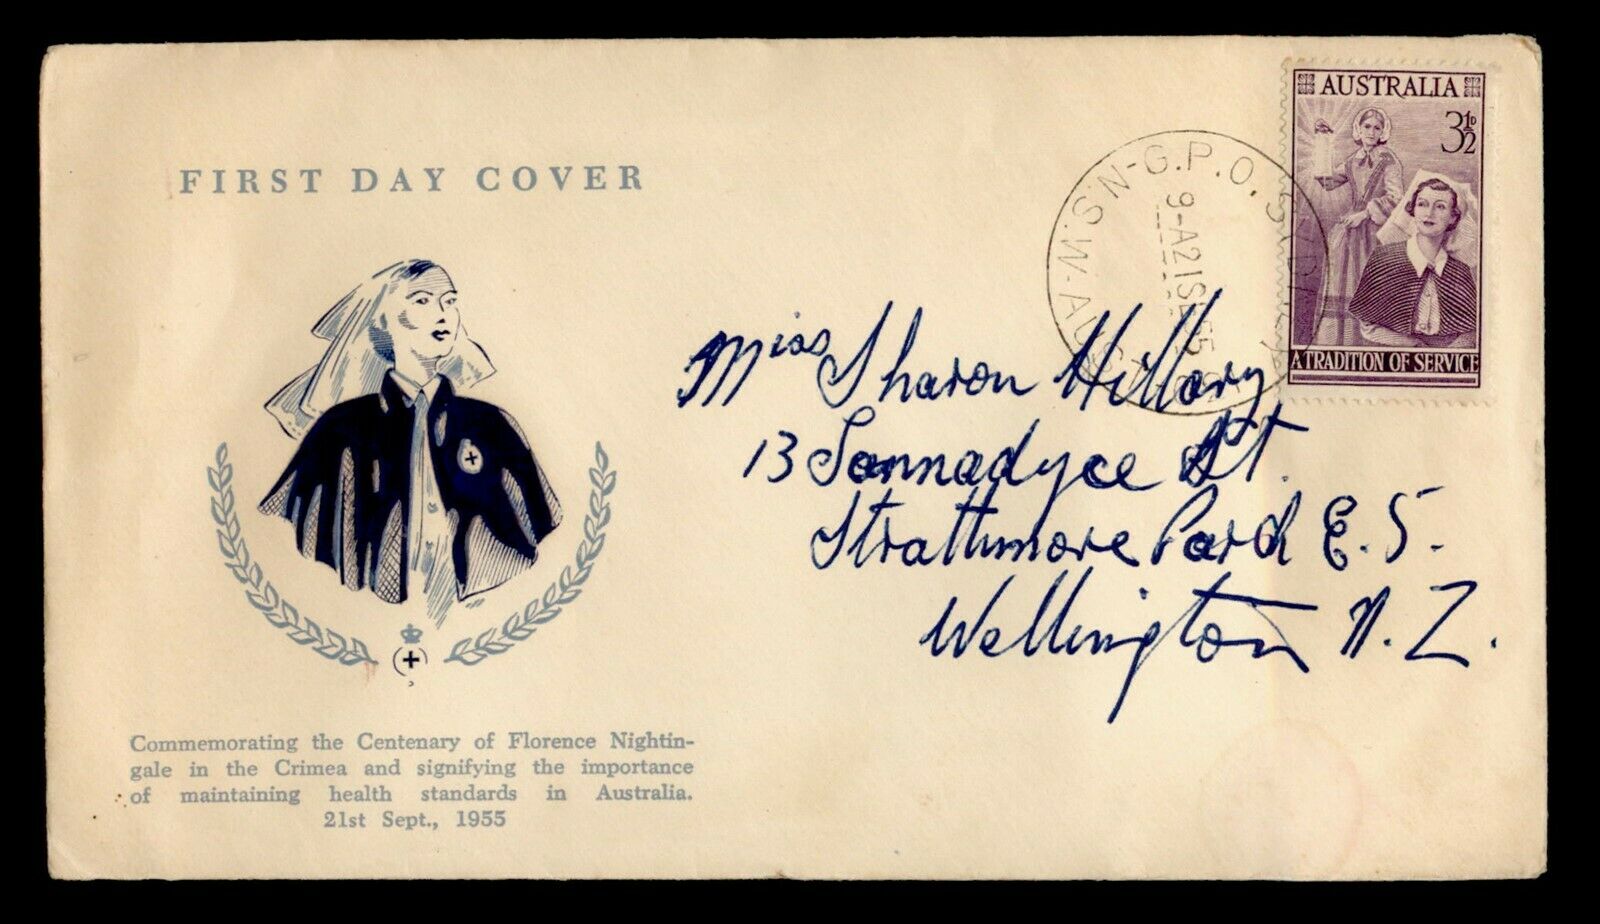 FIRST DAY COVER
AUSTRALIA
3½D
A TRADITION OF SERVICE
G.P.O. SYDNEY
N.S.W-AUSTRALIA
9-A21SE55
Miss Sharon Hillary
13 Sannadyce St.
Strathmore Pard E. 5.
Wellington N. Z.
Commemorating the Centenary of Florence Nightin-
gale in the Crimea and signifying the importance
of maintaining health standards in Australia.
21st Sept., 1955